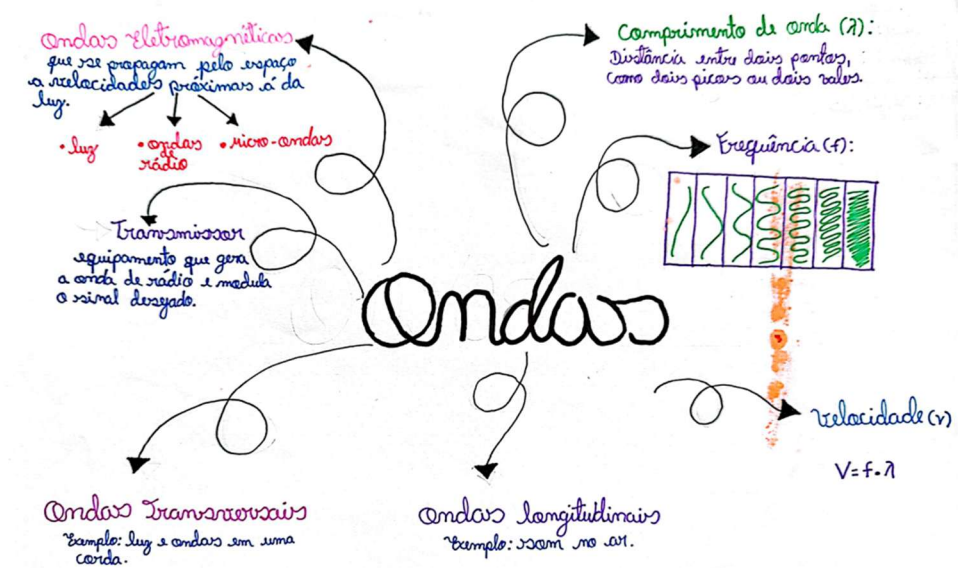 Ondas Eletromagnéticas
que se propagam pelo espaço
a velocidades próximas á da
luz.
• luz
• ondas
de
rádio
• Micro-ondas
Transmissor
equipamento que gera
a onda de rádio e modula
o sinal desejado.
Comprimento de onda (λ):
Distância entre dois pontos,
como dois picos ou dois vales.
Frequência (f):
Ondas
Velocidade (v)
V = f • λ
Ondas Transversais
Exemplo: luz e ondas em uma
corda.
Ondas longitudinais
Exemplo: som no ar.